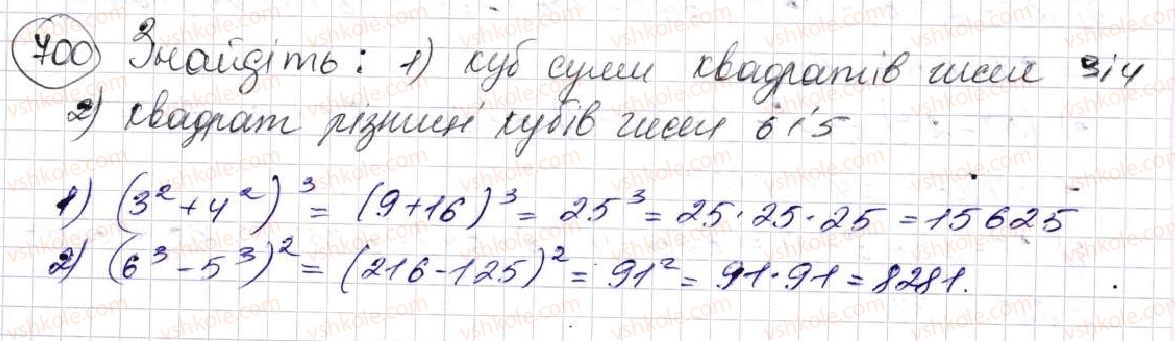 700 Знайдіть: 1) куб суми квадратів чисел 3 і 4
2) квадрат різниці кубів чисел 6 і 5
1) (3² + 4²)³ = (9 + 16)³ = 25³ = 25 · 25 · 25 = 15625
2) (6³ - 5³)² = (216 - 125)² = 91² = 91 · 91 = 8281.